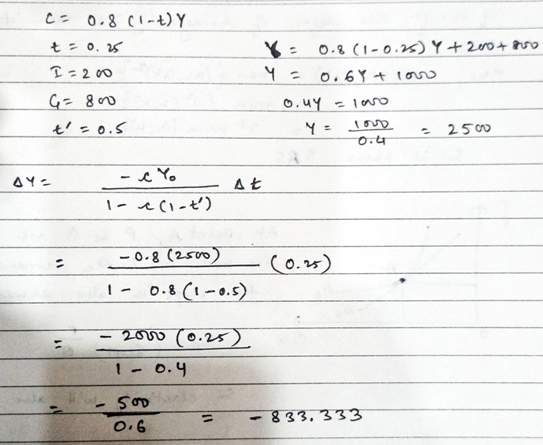 C = 0.8 (1-t)Y
t = 0.25
I = 200
G = 800
t' = 0.5
Y = 0.8(1-0.25)Y+200+800
Y = 0.6Y + 1000
0.4Y = 1000
Y = 1000/0.4 = 2500
ΔY = -cY₀/1-c(1-t') Δt
= -0.8(2500)/1-0.8(1-0.5) (0.25)
= -2000(0.25)/1-0.4
= -500/0.6 = -833.333